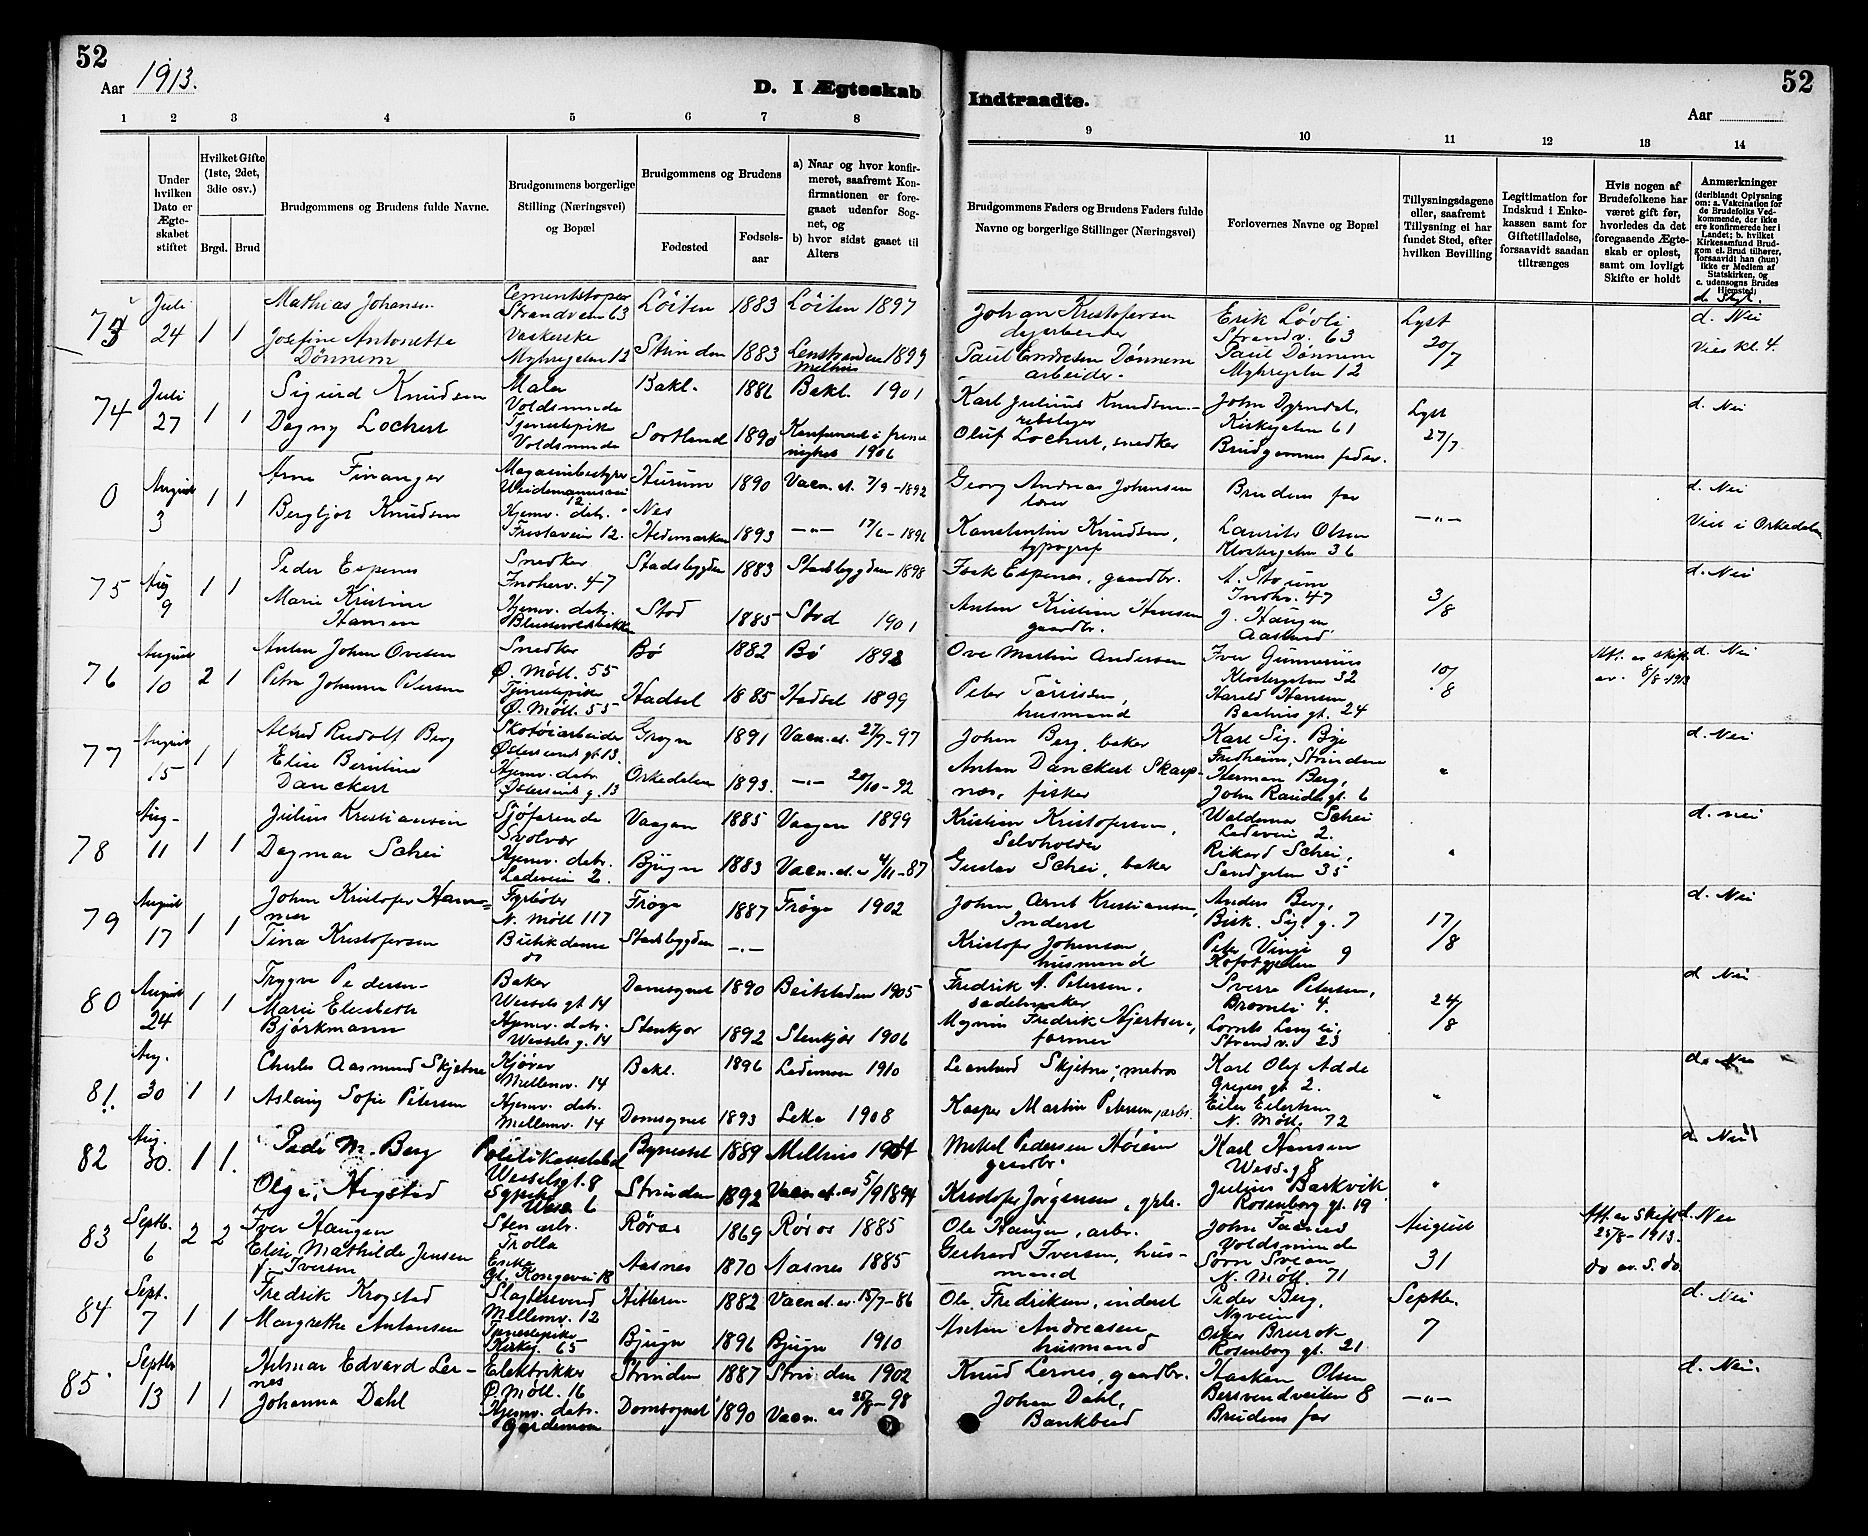 52
Aar 1913.
D. I Ægteskab
Indtraadte.
Aar
52
1 2 3 4 5 6 7 8
9 10 11 12 13 14
Under hvilken Dato er Ægteskabet stiftet
Hvilket Gifte (1ste, 2det, 3die osv.)
Brgd. Brud
Brudgommens og Brudens fulde Navne.
Brudgommens borgerlige Stilling (Næringsvei) og Bopæl
Brudgommens og Brudens
Fødested
Fødsels-aar
a) Naar og hvor konfirmeret, saafremt Konfirmationen er foregaaet udenfor Sognet, og
b) hvor sidst gaaet til Alters
Brudgommens Faders og Brudens Faders fulde Navne og borgerlige Stillinger (Næringsvei)
Forlovernes Navne og Bopæl
Tillysningsdagene eller, saafremt Tillysning ei har fundet Sted, efter hvilken Bevilling
Legitimation for Indskud i Enkekassen samt for Giftetilladelse, forsaavidt saadan tiltrænges
Hvis nogen af Brudefolkene har været gift før, hvorledes da det foregaaende Ægteskab er opløst, samt om lovligt Skifte er holdt
Anmærkninger (deriblandt Oplysning om: a. Vakcination for de Brudefolks Vedkommende, der ikke ere konfirmerede her i Landet; b. hvilket Kirkesamfund Brudgom el. Brud tilhører, forsaavidt han (hun) ikke er Medlem af Statskirken, og c. udensogns Brudes Hjemsted;
d. Skyl.
73 Juli 24 1 1 Mathias Johansen Cementstøper Strandvein 63 Løiten 1883 Løiten 1897 Johan Kristofersen dagarbeider Erik Løvli Strandv. 63 Lyst 20/7 d. Nei
Josefine Antonette Dønnem Vaskerske Myhregaten 12 Strinden 1883 Lenstranden 1899 Melhus Paul Endresen Dønnem arbeider. Paul Dønnem Myhregaten 12 Vies kl. 4.
74 Juli 27 1 1 Sigurd Knudsen Maler Voldsminde Bakl. 1886 Bakl. 1901 Karl Julius Knudsen John Dyrndal, Kirkegaten 61 Lyst 27/7 d. Nei
Dagny Lochert Tjenestepike Voldsminde Sortland 1890 1906 Oluf Lochert, snedker Brudgommens fader.
0 August 3 1 1 Arne Finanger Magasinbestyrer Weidemannsvei 12 Hurum 1890 Vacn. at. 7/9-1892 Georg Andreas Johnsen Brudens far —"— d. Nei
Bergljot Knudsen Hjemv. datr. 12. Nes Hedemarken 1893 —"— 17/6-1896 Konstantin Knudsen, typograf Laurits Olsen Klostergaten 36 Viet i Orkedalen
75 Aug 9 1 1 Peder Espenes Snedker Innherv. 47 Stadsbygden 1883 Stadsbygden 1898 Espenes, gaardbr. A. Storum Innhv. 47 3/8 d. Nei
Marie Kristine Hansen Hjemv. datr. Stod 1885 Stod 1901 Anton Kristian Hansen gaardbr. J. Haugen
76 August 10 2 1 Anton Johan Ovesen Snedker Ø. Møll. 55 Bø 1882 Bø 1898 Ove Martin Andersen Iver Gunnerius Klostergaten 32 10/8 Att. om skifte av 8/8-1913 d. Nei
Petra Johanna Petersen Tjenestepike Ø. Møll. 55 Hadsel 1885 Hadsel 1899 Peter Tørrissen, husmand Harald Hansen, gt. 24
77 August 15 1 1 Alfred Rudolf Berg Skotøiarbeider Østersunds gt. 13. 1891 Vacn. at. 27/7-97 Johan Berg, baker Karl Sig. Bye Fredheim, Strinden " d. Nei
Elise Berntine Danckert Hjemv. datr. Østersunds g. 13 Orkedalen 1893. —"— 20/10-92 Anton Danckert Skarpnæs, fisker Herman Berg, John Randis gt. 6
78 Aug- 11 1 1 Julius Kristiansen Sjøfarende Svolvær Vaagan 1885 Vaagan 1899 Kristian Kristofersen, Selvholder Waldemar Schei Ladevein 2. " d. nei
Dagmar Schei Hjemv. datr. Ladevein 2. Bjugn 1883 Vacn. at. 4/11-87 Gustav Schei, baker Rikard Schei, Sandgaten 35
79 August 17 1 1 Johan Kristofer Hammer Fyrbøter N. Møll 117 Frøya 1887 Frøya 1902 Johan Arnt Kristiansen, Inderst Anders Berg, Bisk. Sig. g. 7 17/8 d. Nei
Tina Kristofersen Butikdame do Stadsbygden —"— Kristofer Johansen, husmand Peter Vinje 9
80 August 24 1 1 Trygve Pedersen Baker Wessels gt. 14 Domsognet 1890 Beitstaden 1905 Fredrik A. Petersen, sadelmaker Sverre Petersen, 4. 24/8 d Nei
Marie Elisabeth Bjørkmann Hjemv. datr. Wessels g. 14 Stenkjær 1892 Stenkjær 1906 Magnus Fredrik former Strandv. 23
81. Aug. 30 1 1 Charles Aasmund Skjetne Kjører Mellemv. 14 Bakl. 1896 Lademoen 1910 Leonhard Skjetne, matros Karl Olaf Adde gt. 2. " d. Nei
Aslaug Sofie Petersen Hjemv. datr. Mellemv. 14 Domsognet 1893 Leka 1908 Kasper Martin Petersen, arb. Eiler Eilertsen N. Møll. 72
82 Aug. 30. 1 1. Peder M. Berg Politikonstabel Wesselsgt. 8 Bynesset 1889 Melhus 1904 Mikal Pedersen Høiem gaardbr. Karl Hansen Wess. g 8 " d. Nei
Olga Hegstad Sypike Wess 6 Strinden 1892 Vacn. at. 5/9 1894 Kristofer Jørgensen, Julius Barkvik, Rosenborg gt. 19
83 Septb. 6 2 2 Iver Haugen Stenarb. Trolla Røros 1869 Røros 1885 Ole Haugen, arb. John Voldsminde August 31 Att. om skifte 25/8-1913. d. Nei
Elise Mathilde Jensen f. Iversen Enke Gl. Kongevei 18 Aasnes 1870 Aasnes 1885 Gerhard Iversen, husmand Sørn Svean N. Møll. 71 do av. S. do
84 Sept. 7 1 1 Fredrik Krogstad Slagtersvend Mellemv. 12 Hitteren 1882 Vacn. at. av 15/7-86 Ole Fredriksen, inderst Peder Berg, Nyveien Septb. 7 d. Nei
Margrethe Antonsen Tjenestepike Kirkeg. 65 Bjugn 1896 Bjugn 1910 Anton Andreasen husmand Oskar Rosenborg gt. 21
85 Septbr 13 1 1 Hilmar Edvard Lernes Elektrikker Ø. Møll. 16 Strinden 1887 Strinden 1902 Knud Lernes, gaardbr. Haakon Olsen Bersvendveiten 8 —"— d. Nei.
Johanna Dahl Hjemv. datr. Gardemoen Domsognet 1890 Vacn. 25/8-98 Johan Dahl, Bankbud Brudens far